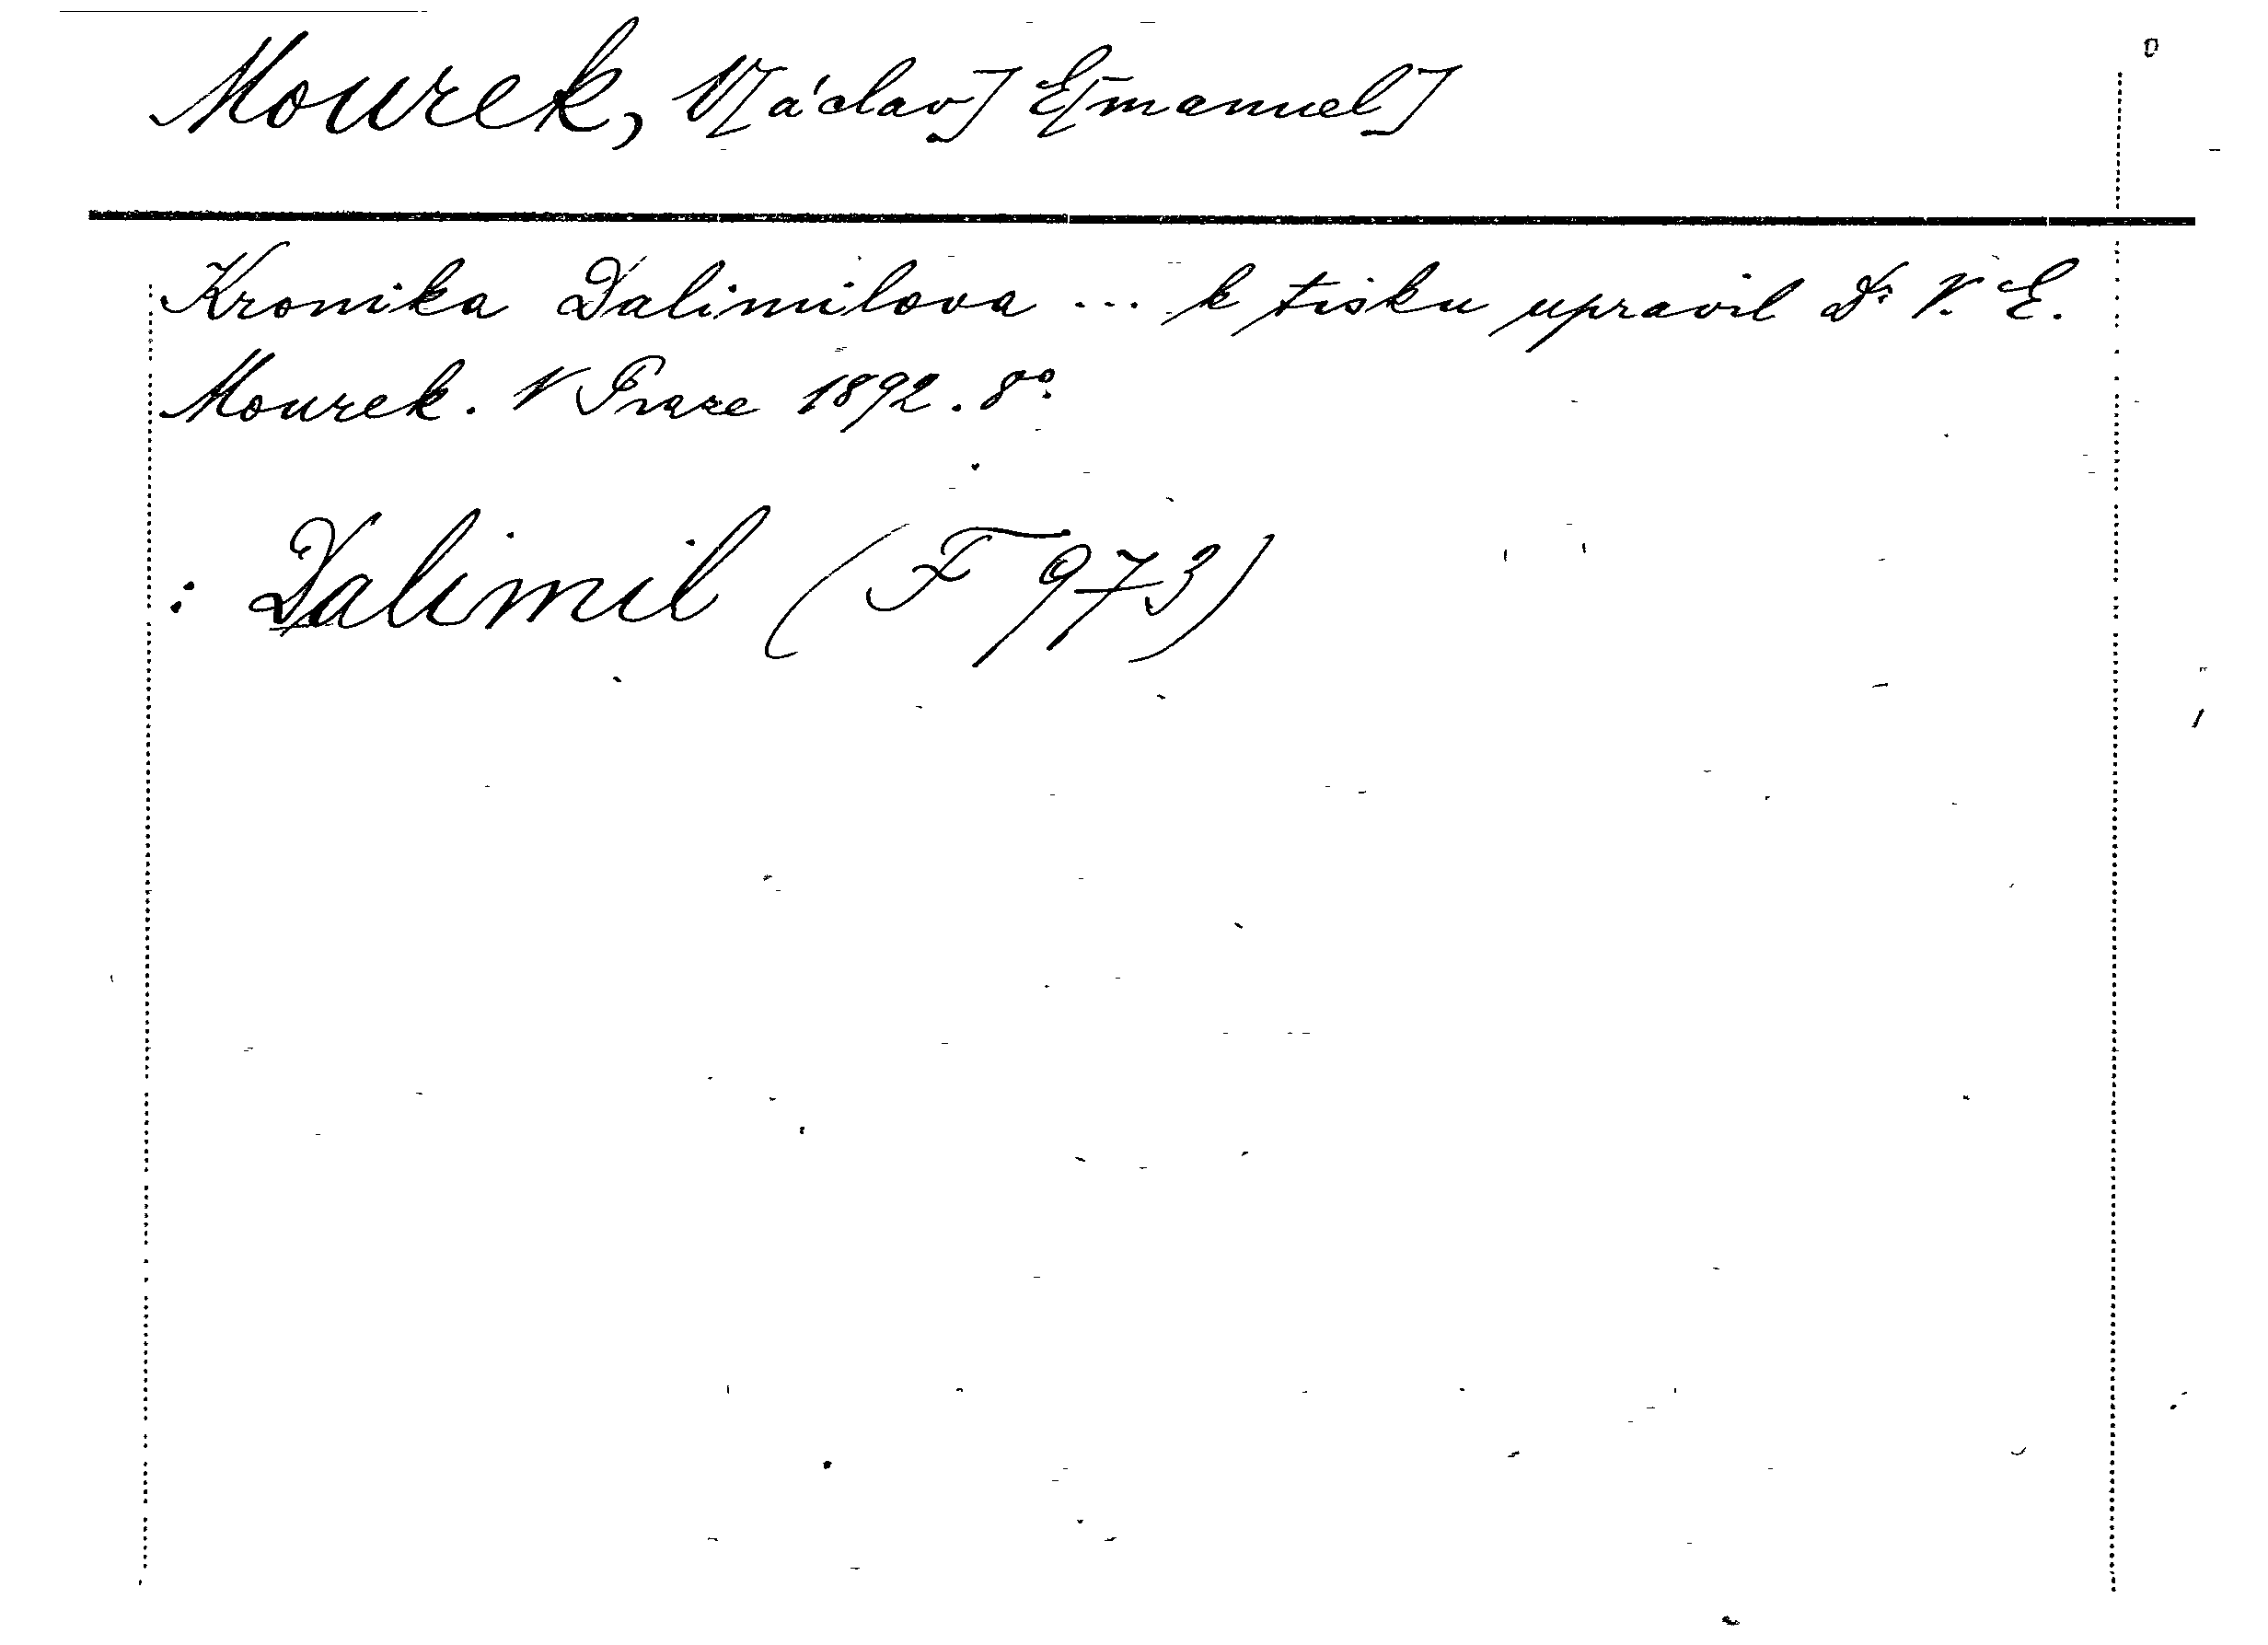 Mourek, V[áclav] E[manuel]
Kronika Dalimilova ... k tisku upravil Dr V. E.
Mourek. V Praze 1892. 8°.
: Dalimil (F 973)